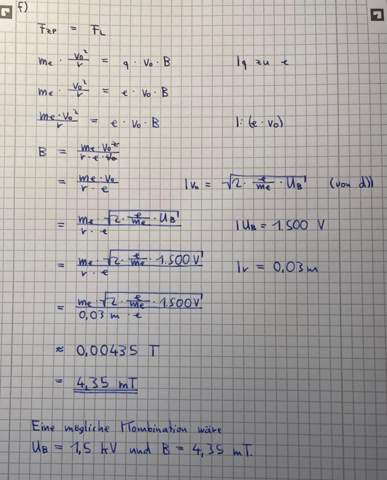 f)
F_ZP = F_L
m_e · v₀²/r = q · v₀ · B |q zu e
m_e · v₀²/r = e · v₀ · B
m_e · v₀²/r = e · v₀ · B |: (e · v₀)
B = m_e · v₀²/r · e · v₀
= m_e · v₀/r · e |v₀ = √(2 · e/m_e · U_B) (von d))
= m_e · √(2 · e/m_e · U_B)/r · e |U_B = 1.500 V
= m_e · √(2 · e/m_e · 1.500 V)/r · e |r = 0,03 m
= m_e · √(2 · e/m_e · 1.500 V)/0,03 m · e
≈ 0,00435 T
= 4,35 mT
Eine mögliche Kombination wäre
U_B = 1,5 kV und B = 4,35 mT.